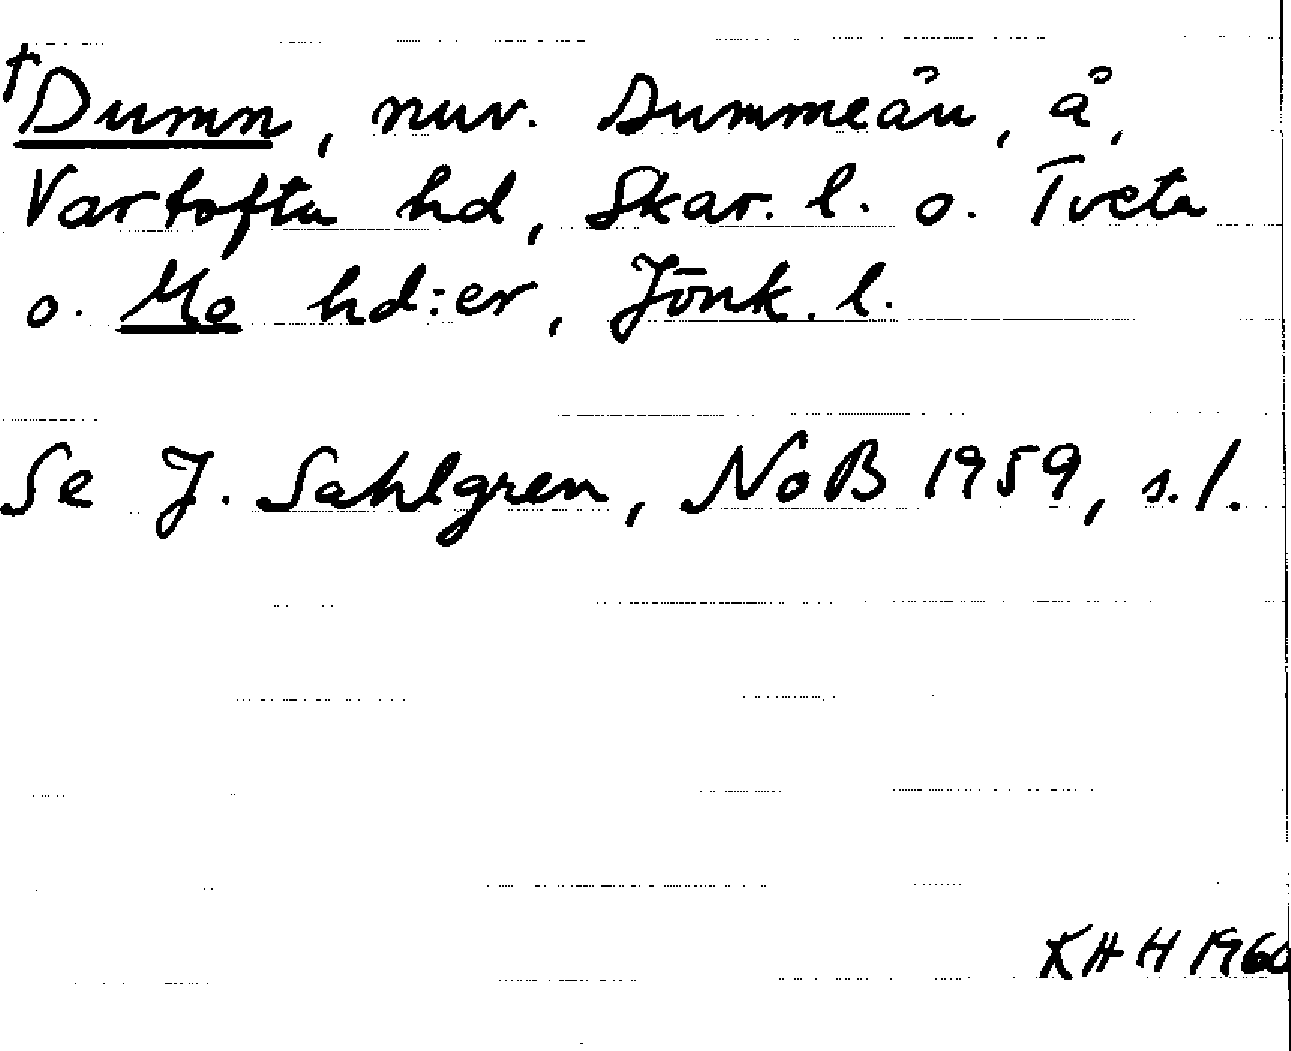 †Dumn, nuv. Dummeån, å,
Vartofta hd, Skar. l. o. Tveta
o. Mo hd:er, Jönk. l.
Se J. Sahlgren, NoB 1959, s. 1.
KHH 1960